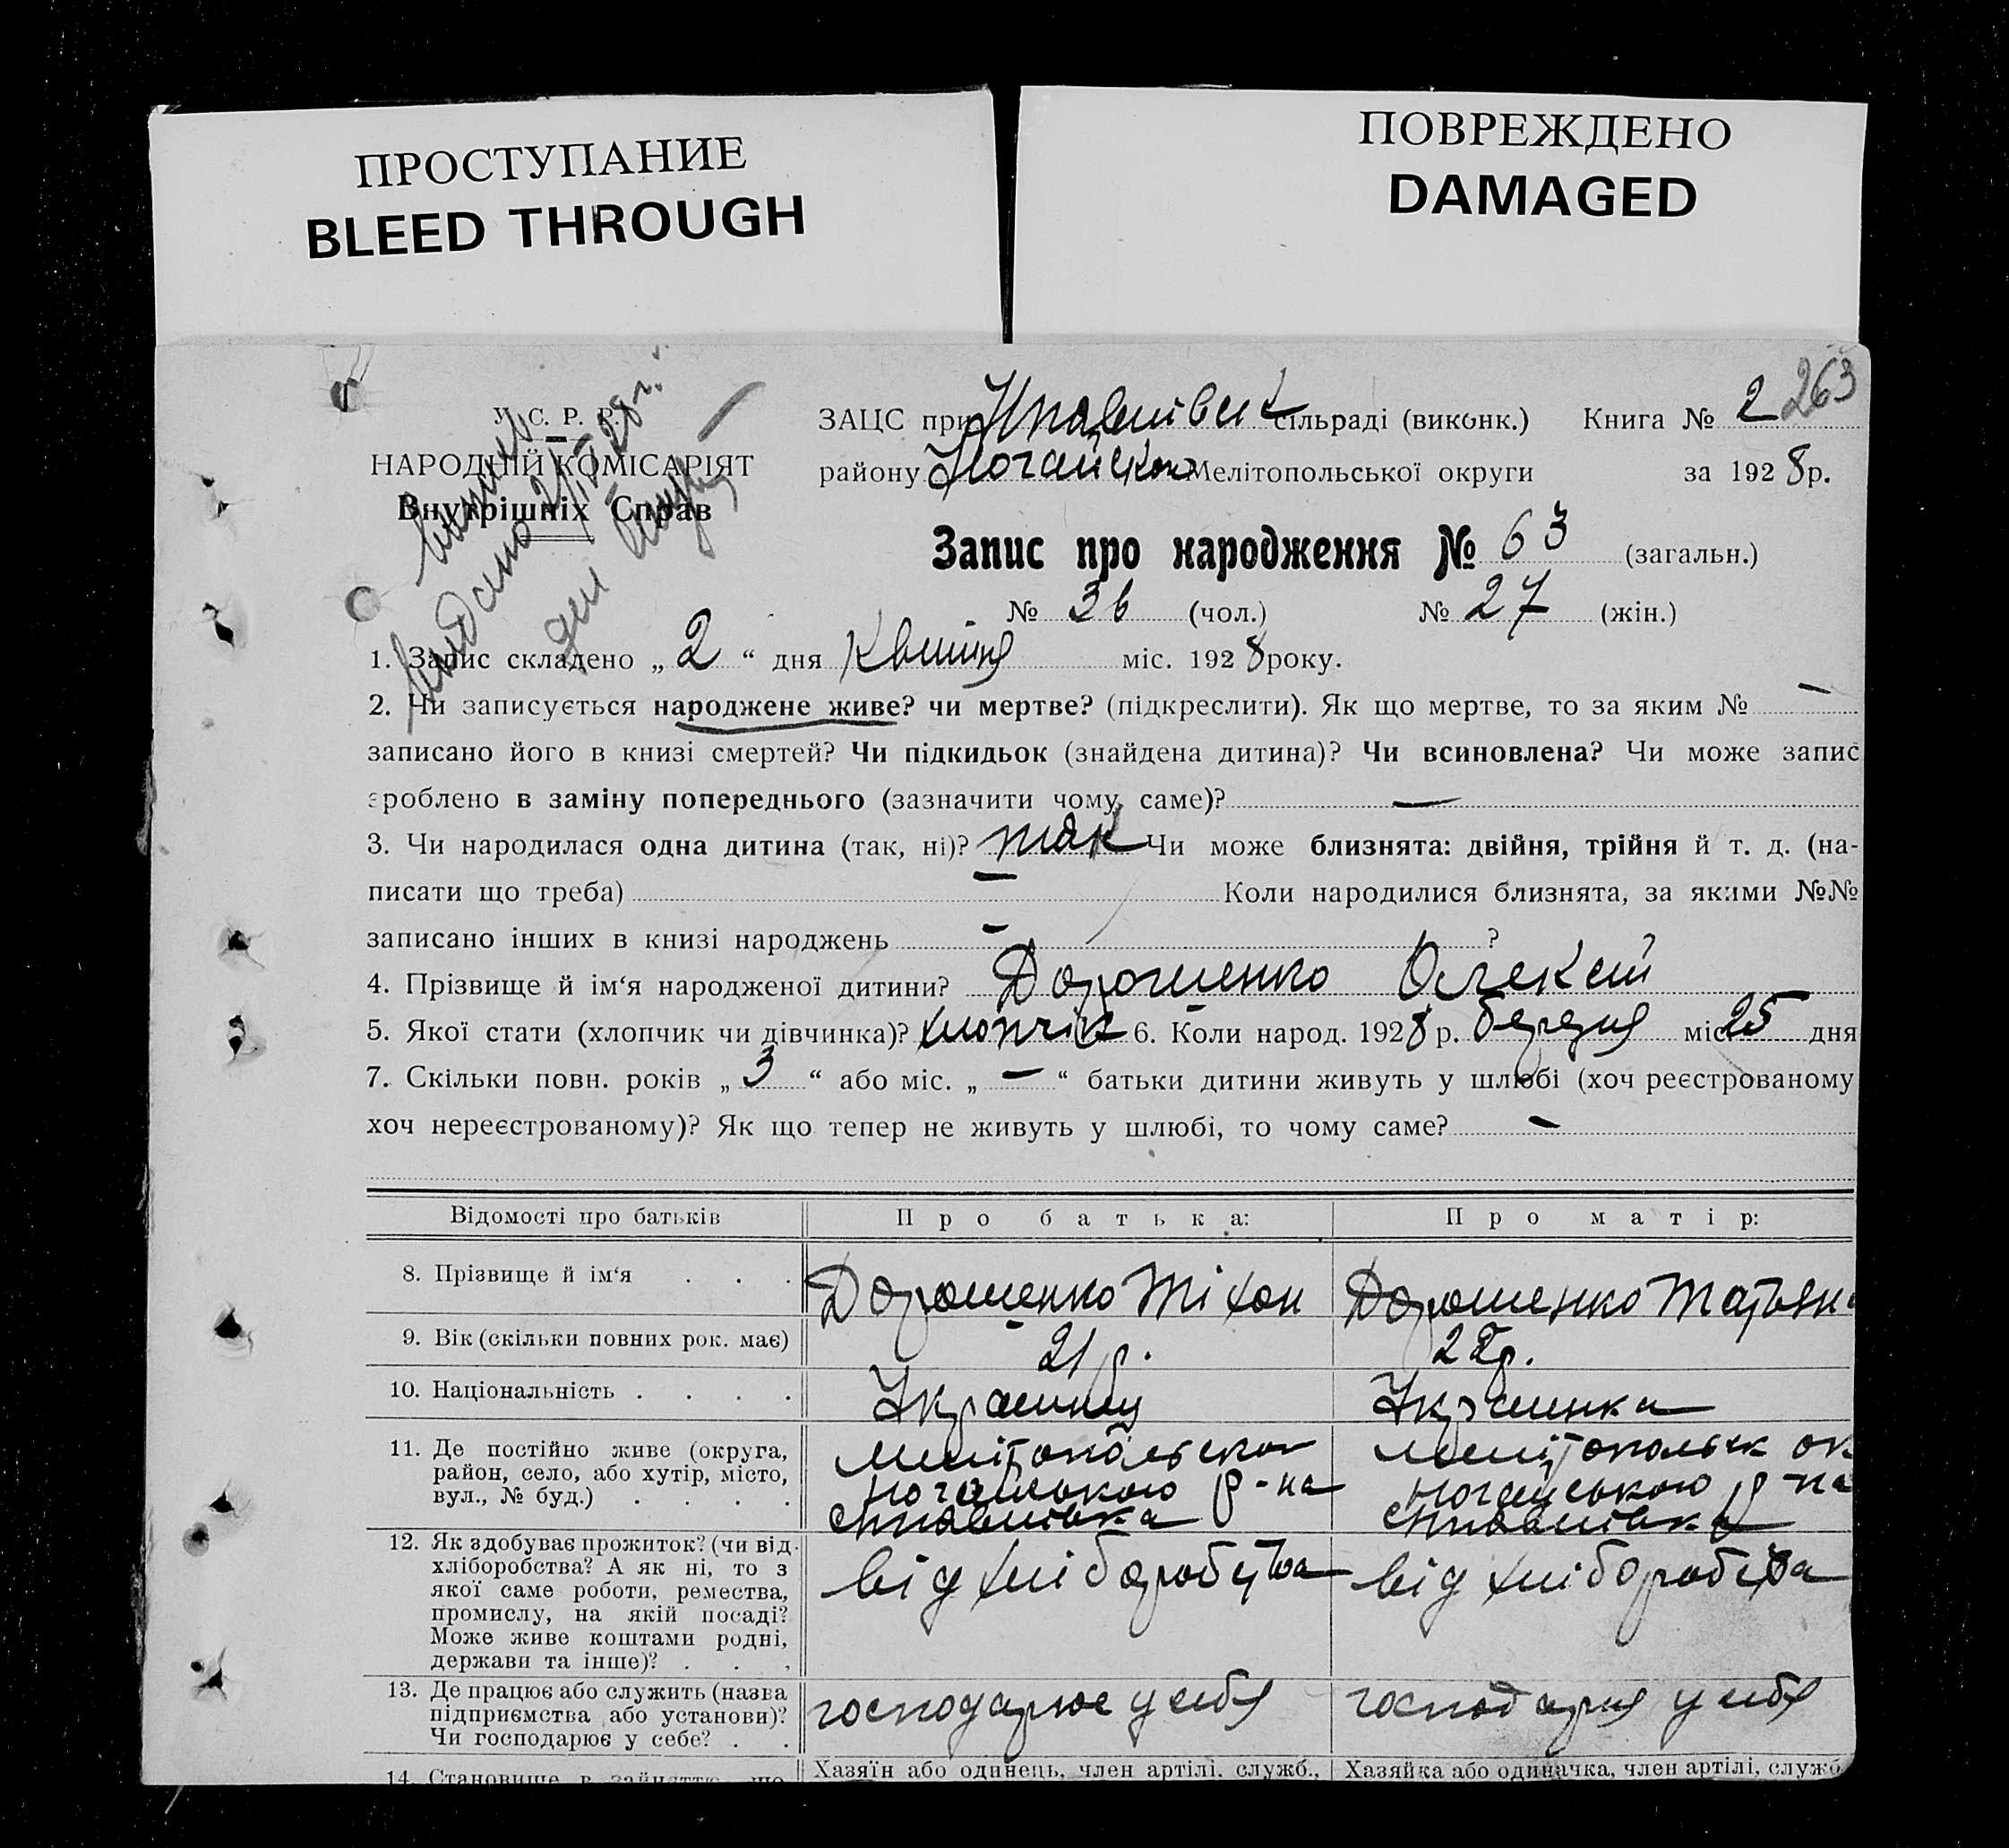 ПРОСТУПАНИЕ
BLEED THROUGH
ПОВРЕЖДЕНО
DAMAGED
263
У. С. Р. Р.
НАРОДНІЙ КОМІСАРІЯТ
Внутрішніх Справ
ЗАЦС при сільраді (виконк.) Книга № 2
району Мелітопольської округи за 1928р.
Запис про народження № 63 (загальн.)
№ 36 (чол.) № 27 (жін.)
1. Запис складено „ 2 “ дня Квітня міс. 1928 року.
2. Чи записується народжене живе? чи мертве? (підкреслити). Як що мертве, то за яким № —
записано його в книзі смертей? Чи підкидьок (знайдена дитина)? Чи всиновлена? Чи може запис
зроблено в заміну попереднього (зазначити чому саме)? —
3. Чи народилася одна дитина (так, ні)? так Чи може близнята: двійня, трійня й т. д. (на-
писати що треба) — Коли народилися близнята, за якими №№
записано інших в книзі народжень — ?
4. Прізвище й ім‘я народженої дитини? Дорошенко Олексій
5. Якої стати (хлопчик чи дівчинка)? хлопчік 6. Коли народ. 1928 р. березня міс. 25 дня
7. Скільки повн. років „ 3 “ або міс. „ — “ батьки дитини живуть у шлюбі (хоч реєстрованому
хоч нереєстрованому)? Як що тепер не живуть у шлюбі, то чому саме? —
Відомості про батьків Про батька: Про матір:
8. Прізвище й ім‘я . . . Дорошенко Тіхон Дорошенко Татьяна
9. Вік (скільки повних рок. має) 21 р. 22 р.
10. Національність . . . . Українец Українка
11. Де постійно живе (округа,
район, село, або хутір, місто,
вул., № буд.) . . . .
Мелітопольскои
ногайського р-на
Мелітопольск ок
ногайського р-на
12. Як здобуває прожиток? (чи від
хліборобства? А як ні, то з
якої саме роботи, ремества,
промислу, на якій посаді?
Може живе коштами родні,
держави та інше)? . . .
від хліборобства від хліборобства
13. Де працює або служить (назва
підприємства або установи)?
Чи господарює у себе? . .
господарює у себя господарує у себя
14. Становище в зайняттю, що
Хазяїн або одинець, член артілі, служб., Хазяйка або одиначка, член артілі, служб.